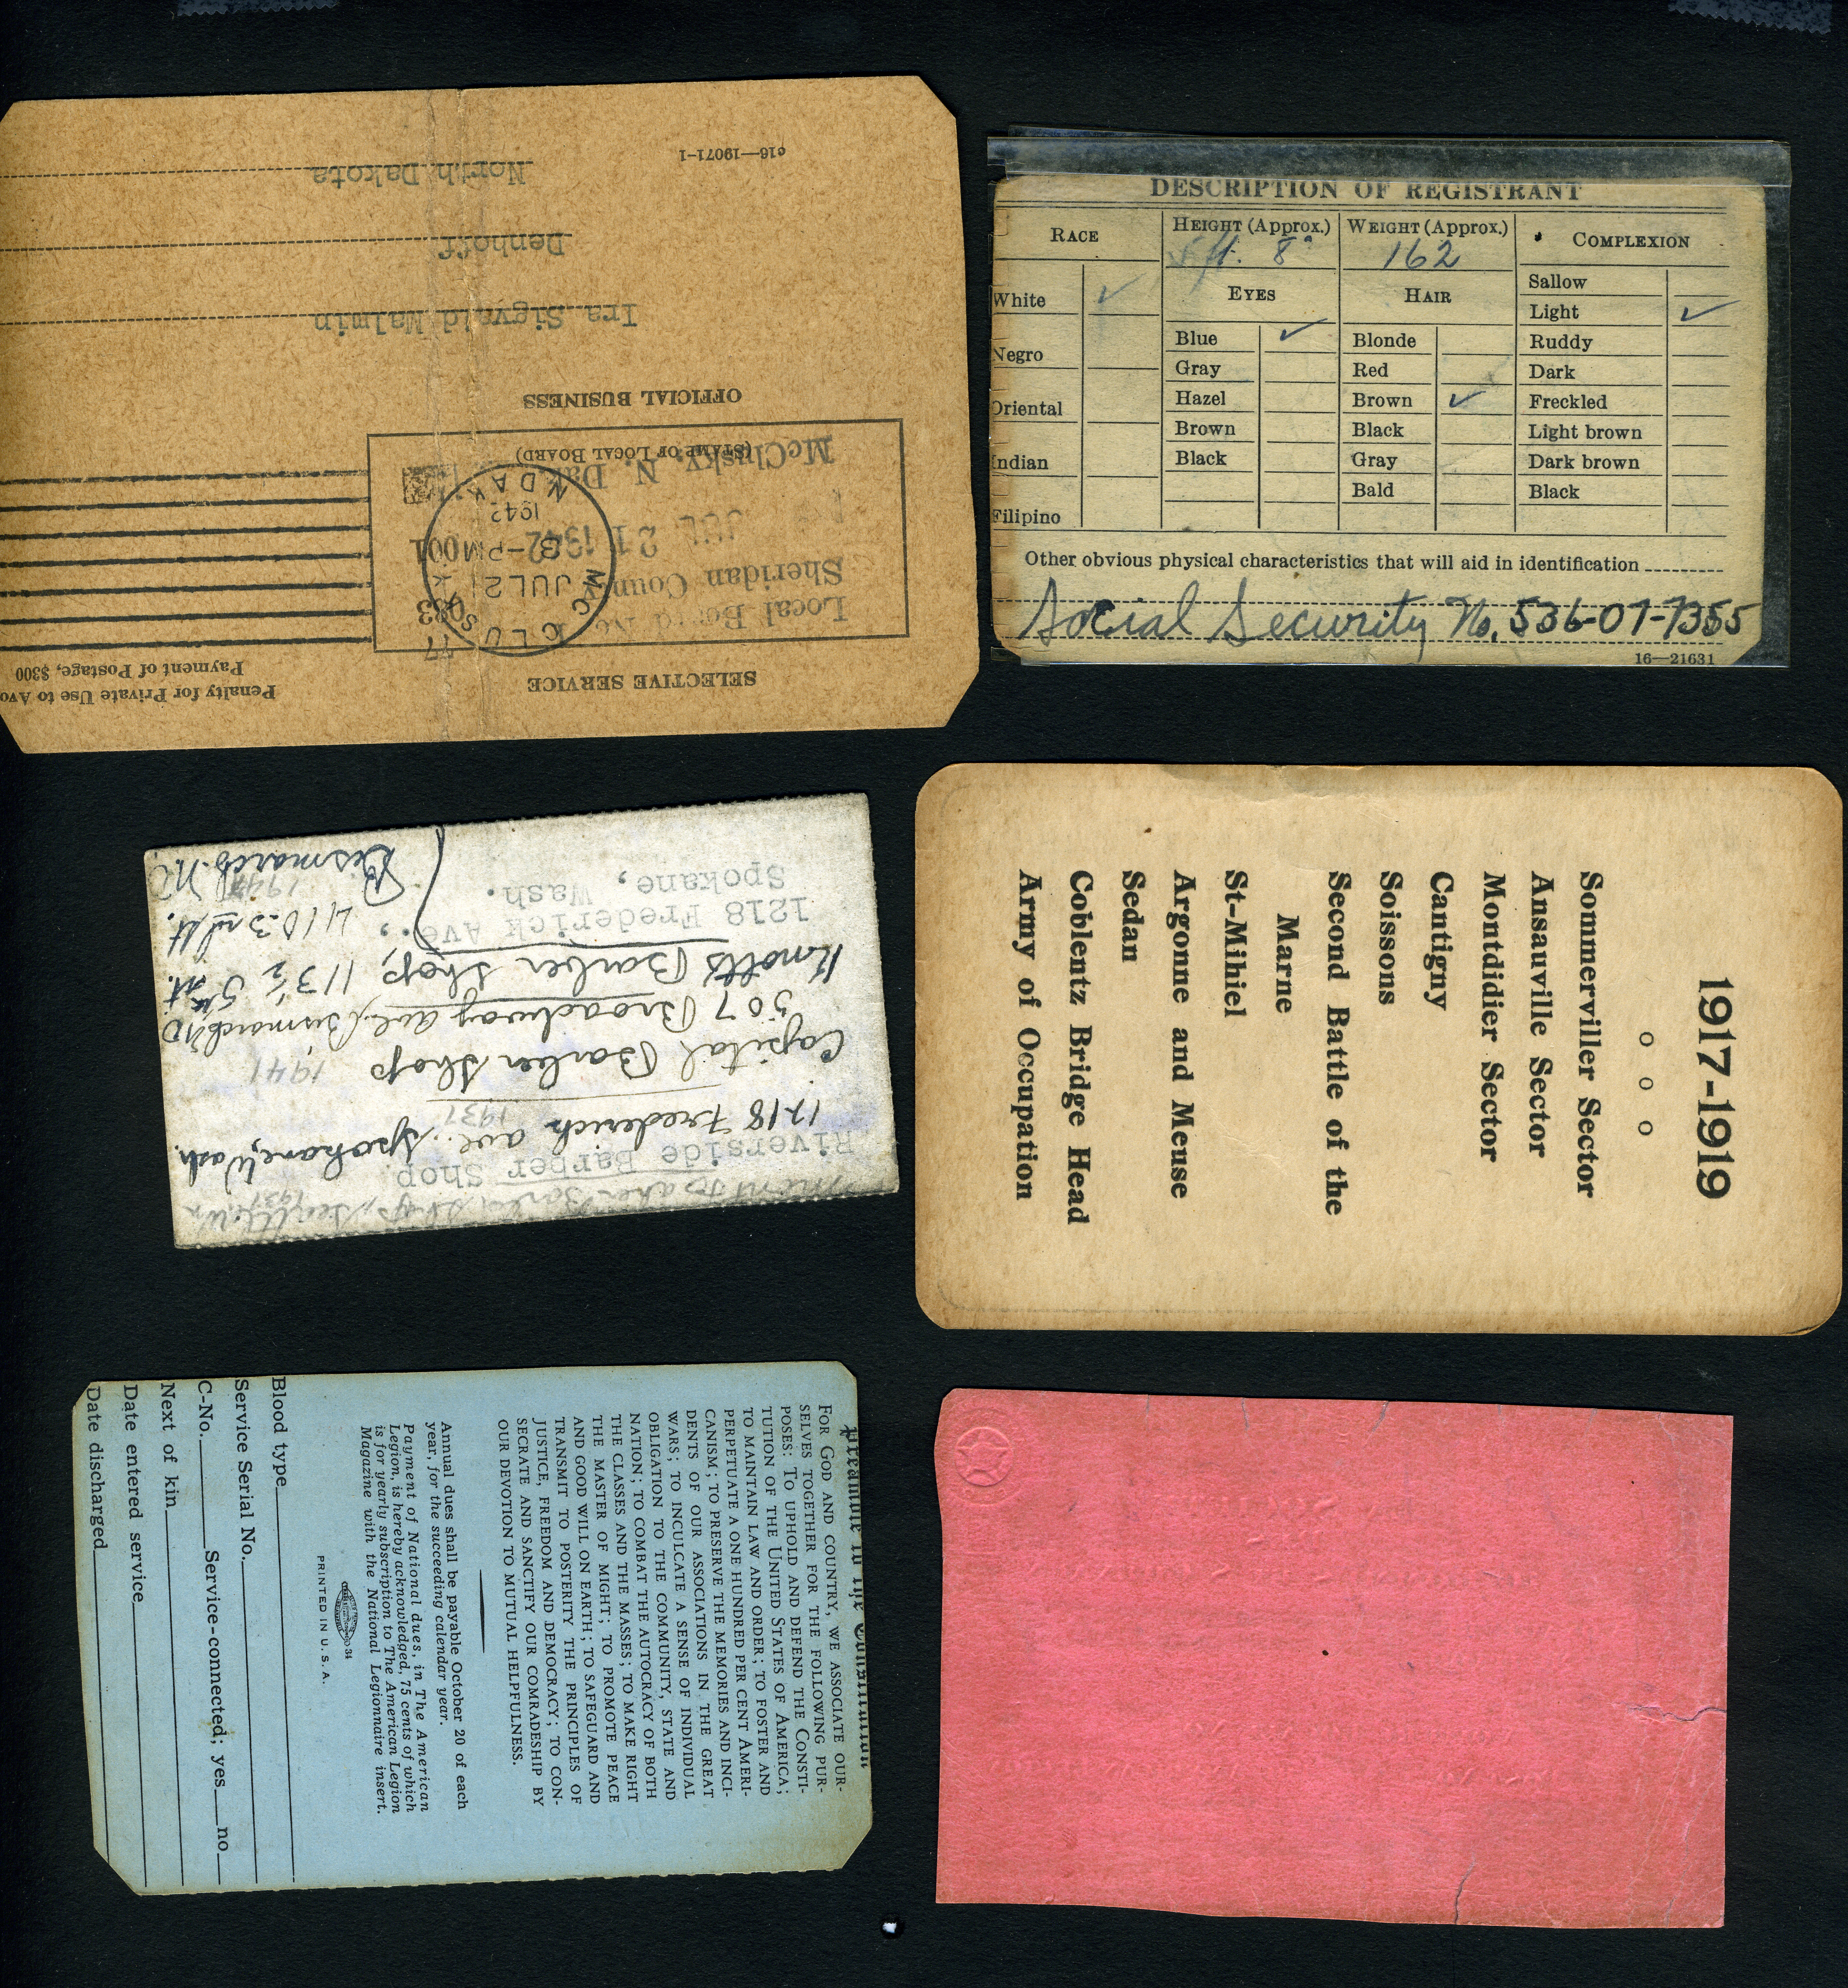 SELECTIVE SERVICE
Penalty for Private Use to Avo
Payment of Postage, $300
Local Board No. 1
Sheridan County
JUL 21 1942
McClusky, N. Dak.
(STAMP OF LOCAL BOARD)
JUL 21
8-PM
1942
N DAK
OFFICIAL BUSINESS
Ira Sigvald Malmin
Denhoff
North Dakota
c16—19071-1
DESCRIPTION OF REGISTRANT
RACE
HEIGHT (Approx.)
WEIGHT (Approx.)
COMPLEXION
5 ft. 8"
162
White ✓
Negro
Oriental
Indian
Filipino
EYES
Blue ✓
Gray
Hazel
Brown
Black
HAIR
Blonde
Red
Brown ✓
Black
Gray
Bald
Sallow
Light ✓
Ruddy
Dark
Freckled
Light brown
Dark brown
Black
Other obvious physical characteristics that will aid in identification
Social Security No. 536-07-7355
16—21631
Barber Shop, Seattle, Wn
1937
Riverside Barber Shop.
1218 Frederick ave. Spokane, Wash.
1937
Capital Barber Shop 1941
507 Broadway ave, Bismarck ND
Knotts Barber Shop, 113½ 5th St.
1218 Frederick Ave.,
410-3rd St.
Spokane, Wash.
Bismarck, N.D.
1917-1919
o o o
Sommerviller Sector
Ansauville Sector
Montdidier Sector
Cantigny
Soissons
Second Battle of the
Marne
St-Mihiel
Argonne and Meuse
Sedan
Coblentz Bridge Head
Army of Occupation
Preamble to the Constitution
FOR GOD AND COUNTRY, WE ASSOCIATE OUR-
SELVES TOGETHER FOR THE FOLLOWING PUR-
POSES: TO UPHOLD AND DEFEND THE CONSTI-
TUTION OF THE UNITED STATES OF AMERICA;
TO MAINTAIN LAW AND ORDER; TO FOSTER AND
PERPETUATE A ONE HUNDRED PER CENT AMERI-
CANISM; TO PRESERVE THE MEMORIES AND INCI-
DENTS OF OUR ASSOCIATIONS IN THE GREAT
WARS; TO INCULCATE A SENSE OF INDIVIDUAL
OBLIGATION TO THE COMMUNITY, STATE AND
NATION; TO COMBAT THE AUTOCRACY OF BOTH
THE CLASSES AND THE MASSES; TO MAKE RIGHT
THE MASTER OF MIGHT; TO PROMOTE PEACE
AND GOOD WILL ON EARTH; TO SAFEGUARD AND
TRANSMIT TO POSTERITY THE PRINCIPLES OF
JUSTICE, FREEDOM AND DEMOCRACY; TO CON-
SECRATE AND SANCTIFY OUR COMRADESHIP BY
OUR DEVOTION TO MUTUAL HELPFULNESS.
Annual dues shall be payable October 20 of each
year, for the succeeding calendar year.
Payment of National dues, in The American
Legion, is hereby acknowledged, 75 cents of which
is for yearly subscription to The American Legion
Magazine with the National Legionnaire insert.
34
PRINTED IN U. S. A.
Blood type
Service Serial No.
C-No. Service-connected; yes no
Next of kin
Date entered service
Date discharged